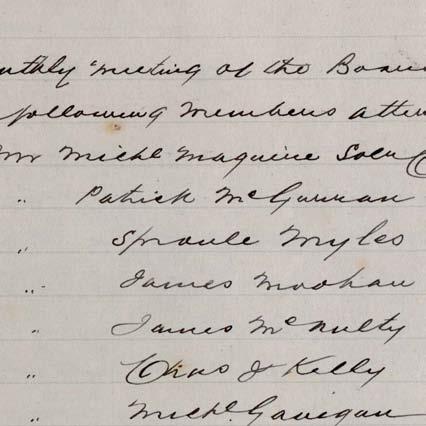 nthly meeting of the Boar
following members atten
Mr Michl Maguire Solr
" Patrick McGurran
" Sproule Myles
" James Moohan
" James McNulty
" Chas J Kelly
" Michl. Gavigan